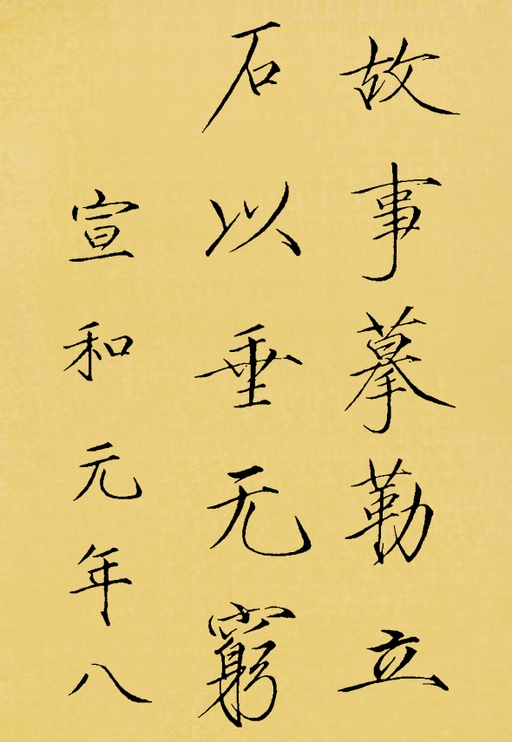 故事摹勒立
石以垂无窮
宣和元年八